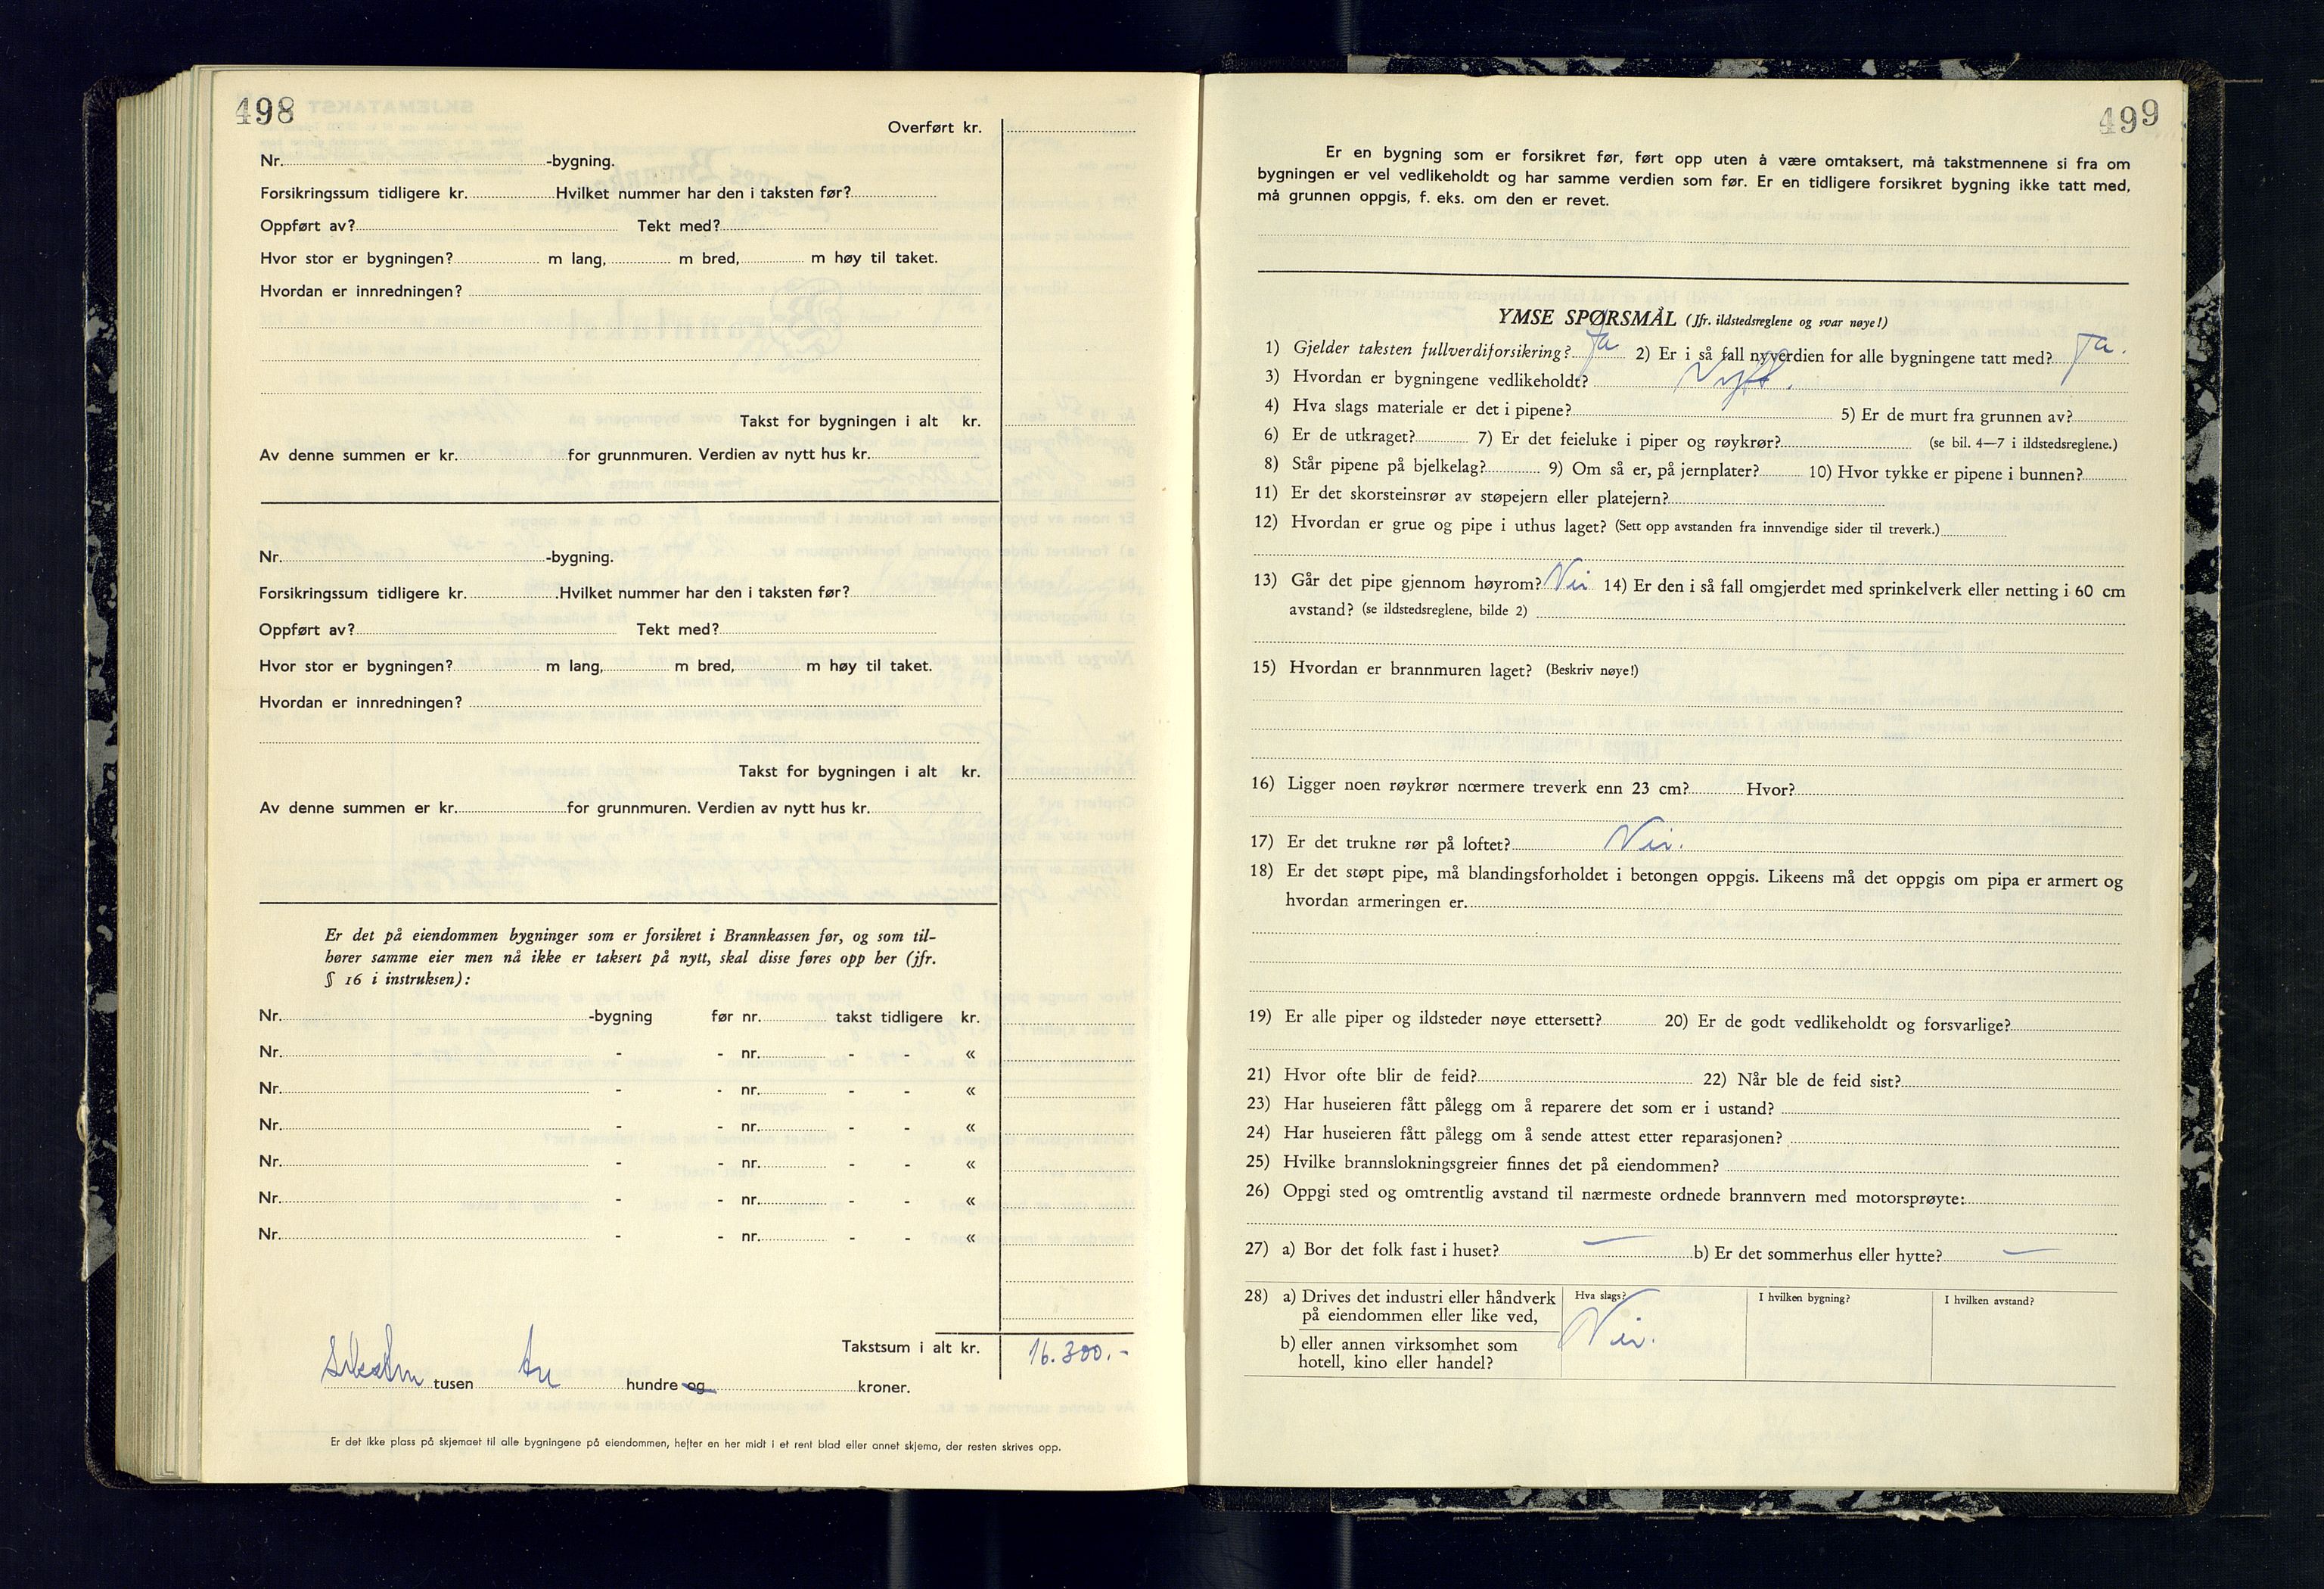 498
Overført kr.
Nr. -bygning.
Forsikringssum tidligere kr. Hvilket nummer har den i taksten før?
Oppført av? Tekt med?
Hvor stor er bygningen? m lang, m bred, m høy til taket.
Hvordan er innredningen?
Takst for bygningen i alt kr.
Av denne summen er kr. for grunnmuren. Verdien av nytt hus kr.
Nr. -bygning.
Forsikringssum tidligere kr. Hvilket nummer har den i taksten før?
Oppført av? Tekt med?
Hvor stor er bygningen? m lang, m bred, m høy til taket.
Hvordan er innredningen?
Takst for bygningen i alt kr.
Av denne summen er kr. for grunnmuren. Verdien av nytt hus kr.
Er det på eiendommen bygninger som er forsikret i Brannkassen før, og som til-
hører samme eier men nå ikke er taksert på nytt, skal disse føres opp her (jfr.
§ 16 i instruksen):
Nr. -bygning før nr. takst tidligere kr.
Nr. - - nr. - - «
Nr. - - nr. - - «
Nr. - - nr. - - «
Nr. - - nr. - - «
Nr. - - nr. - - «
Nr. - - nr. - - «
Takstsum i alt kr. 16.300.-
tusen tre hundre og kroner.
Er det ikke plass på skjemaet til alle bygningene på eiendommen, hefter en her midt i et rent blad eller annet skjema, der resten skrives opp.
499
Er en bygning som er forsikret før, ført opp uten å være omtaksert, må takstmennene si fra om
bygningen er vel vedlikeholdt og har samme verdien som før. Er en tidligere forsikret bygning ikke tatt med,
må grunnen oppgis, f. eks. om den er revet.
YMSE SPØRSMÅL (Jfr. ildstedsreglene og svar nøye!)
1) Gjelder taksten fullverdiforsikring? Ja 2) Er i så fall nyverdien for alle bygningene tatt med? Ja.
3) Hvordan er bygningene vedlikeholdt? Nytt.
4) Hva slags materiale er det i pipene? 5) Er de murt fra grunnen av?
6) Er de utkraget? 7) Er det feieluke i piper og røykrør? (se bil. 4—7 i ildstedsreglene.)
8) Står pipene på bjelkelag? 9) Om så er, på jernplater? 10) Hvor tykke er pipene i bunnen?
11) Er det skorsteinsrør av støpejern eller platejern?
12) Hvordan er grue og pipe i uthus laget? (Sett opp avstanden fra innvendige sider til treverk.)
13) Går det pipe gjennom høyrom? Nei 14) Er den i så fall omgjerdet med sprinkelverk eller netting i 60 cm
avstand? (se ildstedsreglene, bilde 2)
15) Hvordan er brannmuren laget? (Beskriv nøye!)
16) Ligger noen røykrør nœrmere treverk enn 23 cm? Hvor?
17) Er det trukne rør på loftet? Nei.
18) Er det støpt pipe, må blandingsforholdet i betongen oppgis. Likeens må det oppgis om pipa er armert og
hvordan armeringen er.
19) Er alle piper og ildsteder nøye ettersett? 20) Er de godt vedlikeholdt og forsvarlige?
21) Hvor ofte blir de feid? 22) Når ble de feid sist?
23) Har huseieren fått pålegg om å reparere det som er i ustand?
24) Har huseieren fått pålegg om å sende attest etter reparasjonen?
25) Hvilke brannslokningsgreier finnes det på eiendommen?
26) Oppgi sted og omtrentlig avstand til nærmeste ordnede brannvern med motorsprøyte:
27) a) Bor det folk fast i huset? — b) Er det sommerhus eller hytte? —
28) a) Drives det industri eller håndverk
på eiendommen eller like ved,
b) eller annen virksomhet som
hotell, kino eller handel?
Hva slags?
Nei.
I hvilken bygning?
I hvilken avstand?